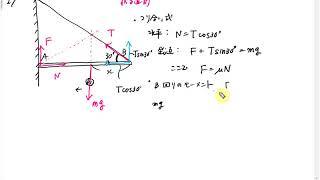 ・つり合い式
水平: N = Tcos30°
鉛直: F + Tsin30° = mg
ここで F = μN
B回りのモーメント
F
T
30°
B
Tsin30°
A
N
x
mg
Tcos30°
mg